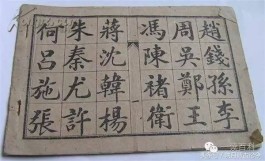 趙錢孫李
周吳鄭王
馮陳褚衛
蔣沈韓楊
朱秦尤許
何呂施張